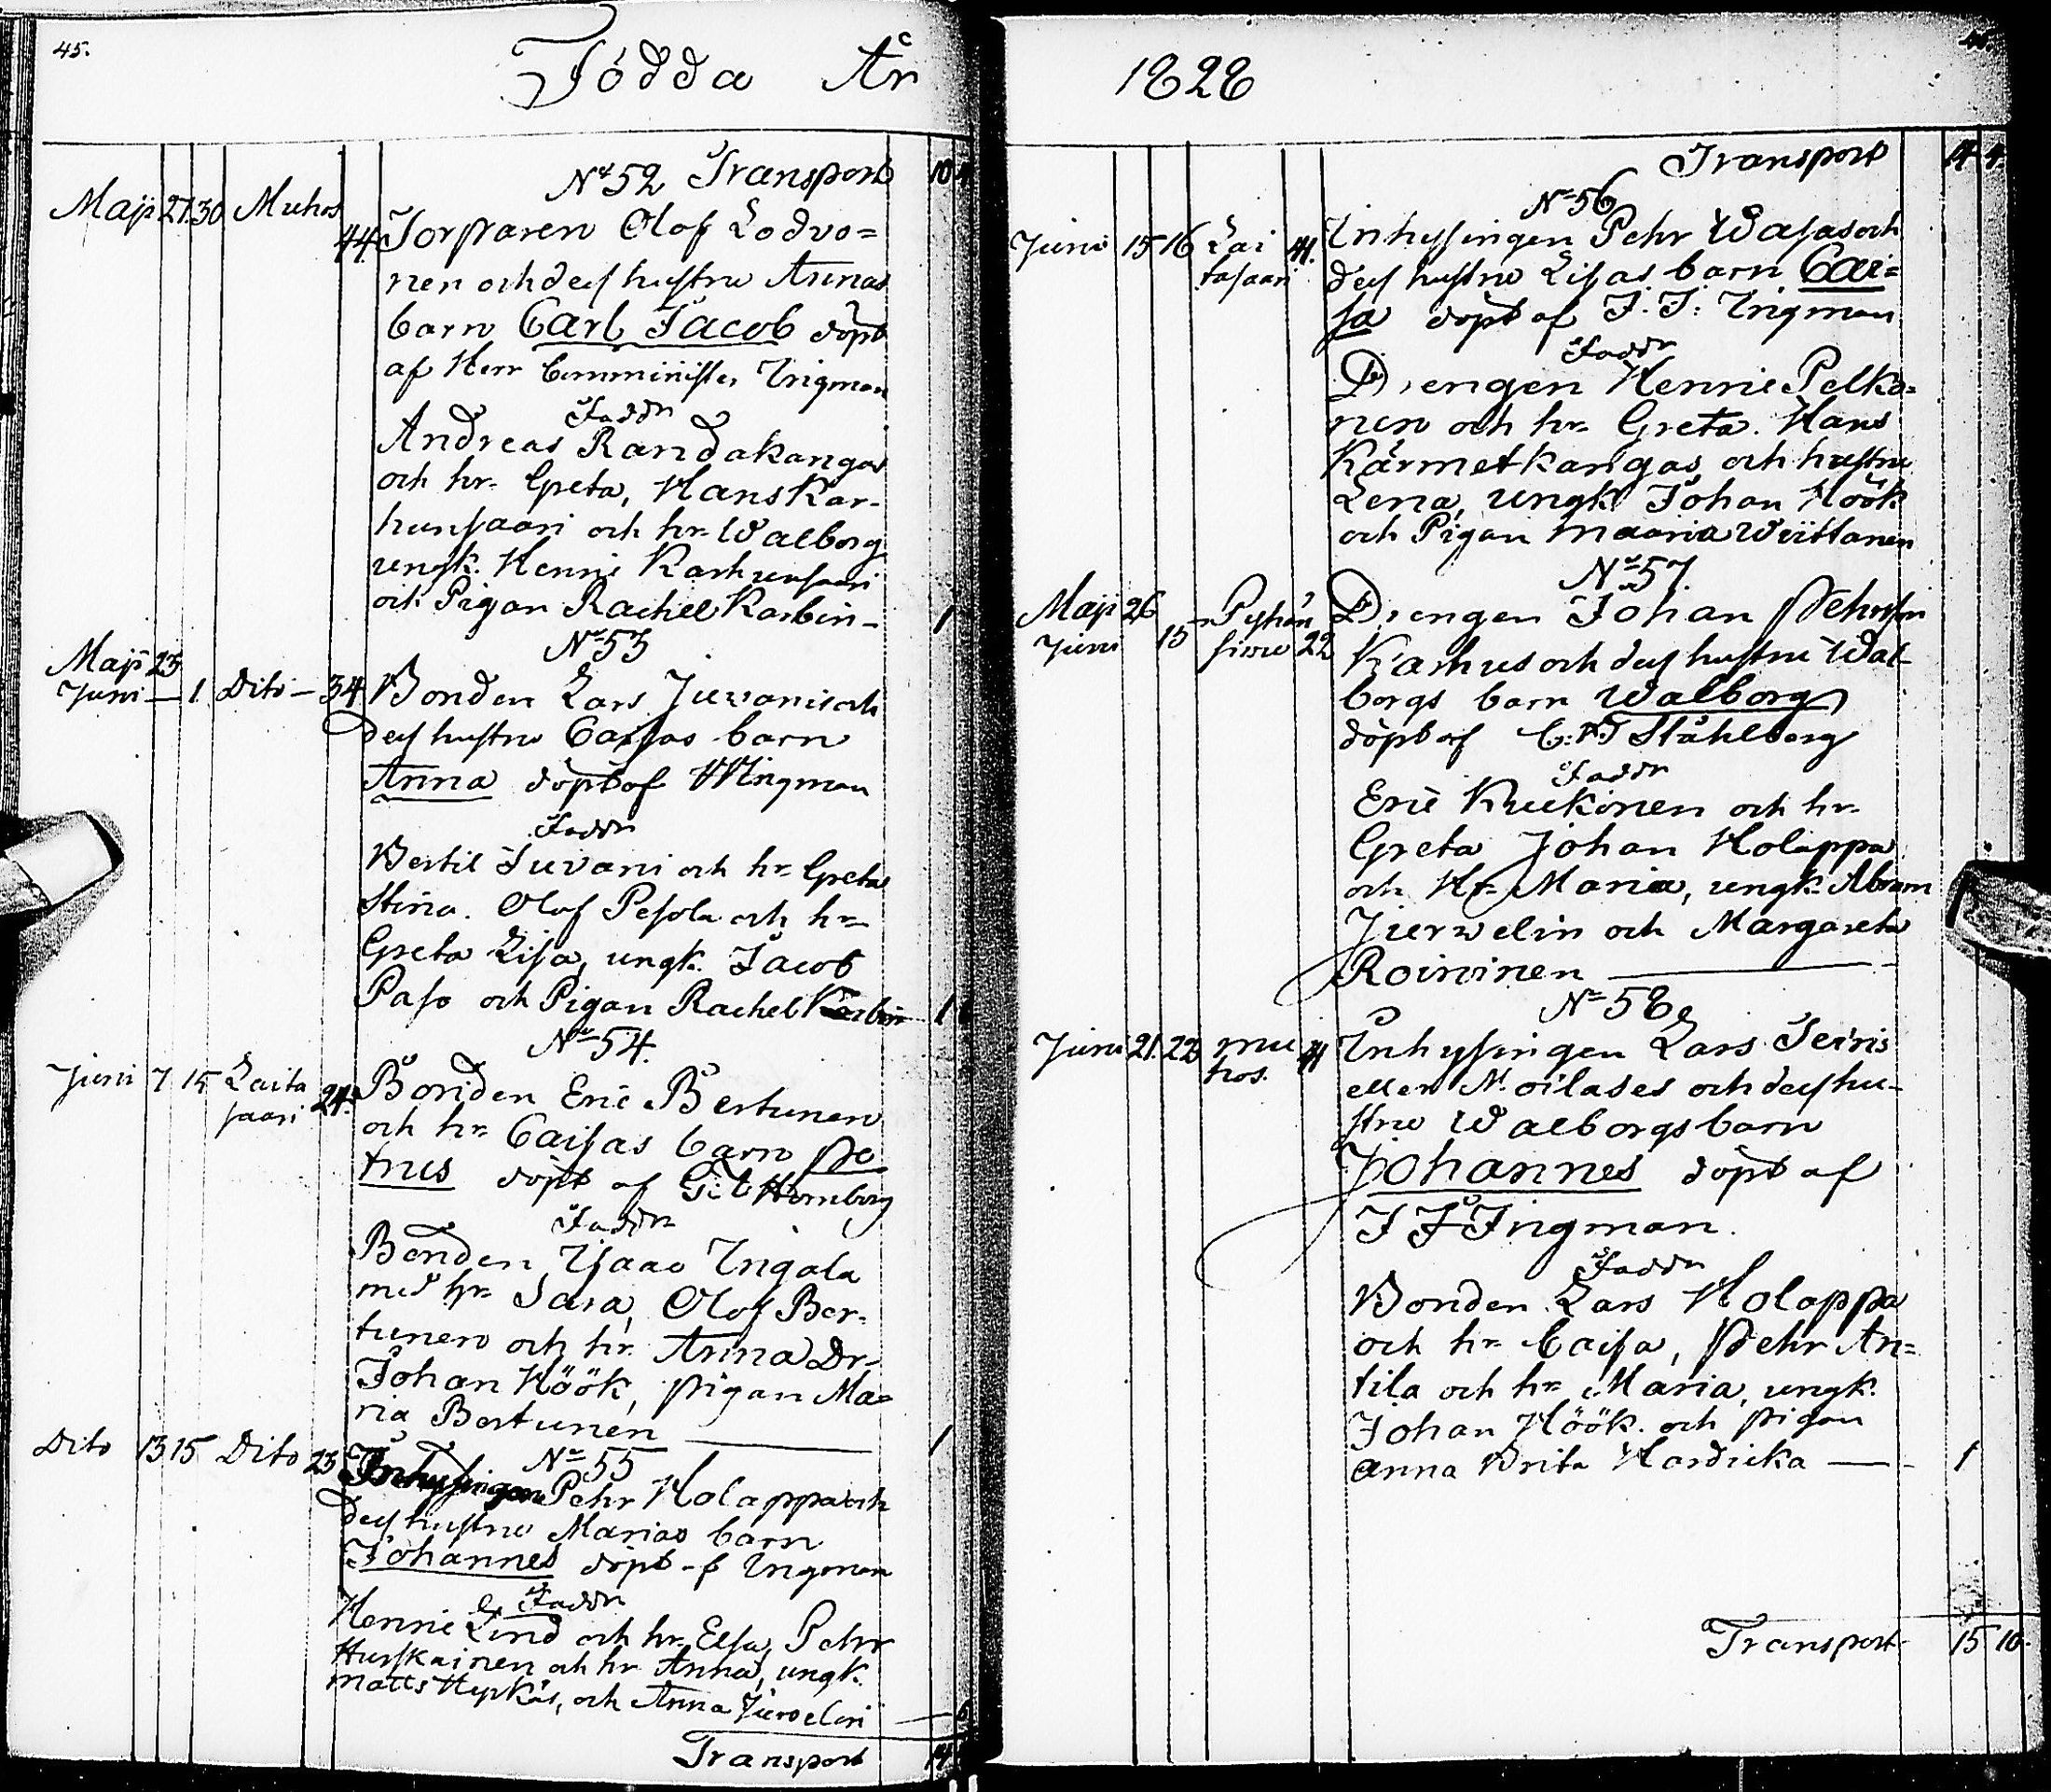 45.
Födda År
Transport
No 52
Maji 27 30 Muhos 44 Torparen Olof Lodvo=
nen och dess hustru Annas
barn Carl Jacob döpt
af Herr Comminister Ingman
Faddr
Andreas Randakangas
och hr. Greta, Hans Kar-
hunsaari och hr Walborg
ungk. Henric Karhunsaari
och Pigan Rachel Karbin - 1
No 53
Maji 23
Juni - 1. Dito - 34 Bonden Lars Juvani och
dess hustru Caisas barn
Anna döpt af Ingman
Faddr
Bertil Juvani och hr Greta
Stina. Olof Pesola och hr
Greta Lisa, ungk. Jacob
Paso och Pigan Rachel Karbin 1
No 54.
Juni 7 15 Laita
saari 24. Bonden Eric Bertunen
och hr Caisas barn Pe
trus döpt af Hornborg
Faddr
Bonden Isaac Ingala
med hr Sara, Olof Ber-
tunen och hr. Anna Dr
Johan Höök, pigan Ma=
ria Bertunen 1
No 55
Dito 13 15 Dito 25 Inhysingen Pehr Holappa och
dess hustru Marias barn
Johannes döpt af Ingman
Faddr
Henric Lind och hr Elsa, Pehr
Hurskainen och hr Anna, ungk.
Matts och Anna Jurvelin
Transport
1828
Transport
No 56
Juni 15 16 Lai
tasaari 41. Inhysingen Pehr Wasas och
dess hustru Lisas barn Cai=
sa döpt af J. F: Ingman
Faddr
Drengen Henric Pelko=
nen och hr Greta. Hans
Kärmetkangas och hustru
Lena, ungk Johan Höök
och Pigan Maaria Wiittanen
No 57.
Maji 26
Juni 15 22 Drengen Johan Pehrsson
Karhus och dess hustru Wal-
borgs barn Walborg
döpt af Ståhlberg
Faddr
Eric Kuckonen och hr
Greta Johan Holappa
och Hr Maria, ungk. Abram
Jurvelin och Margareta
Roininen
No 58
Juni 21. 22 Mu
hos. 41 Inhysingen Lars
eller och dess hu-
stru Walborgs barn
Johannes döpt af
J F Ingman.
Faddr
Bonden Lars Holappa
och hr Caisa, Pehr An=
tila och hr Maria, ungk.
Johan Höök och pigan
Anna Brita Hardicka - 1
Transport 15 10.